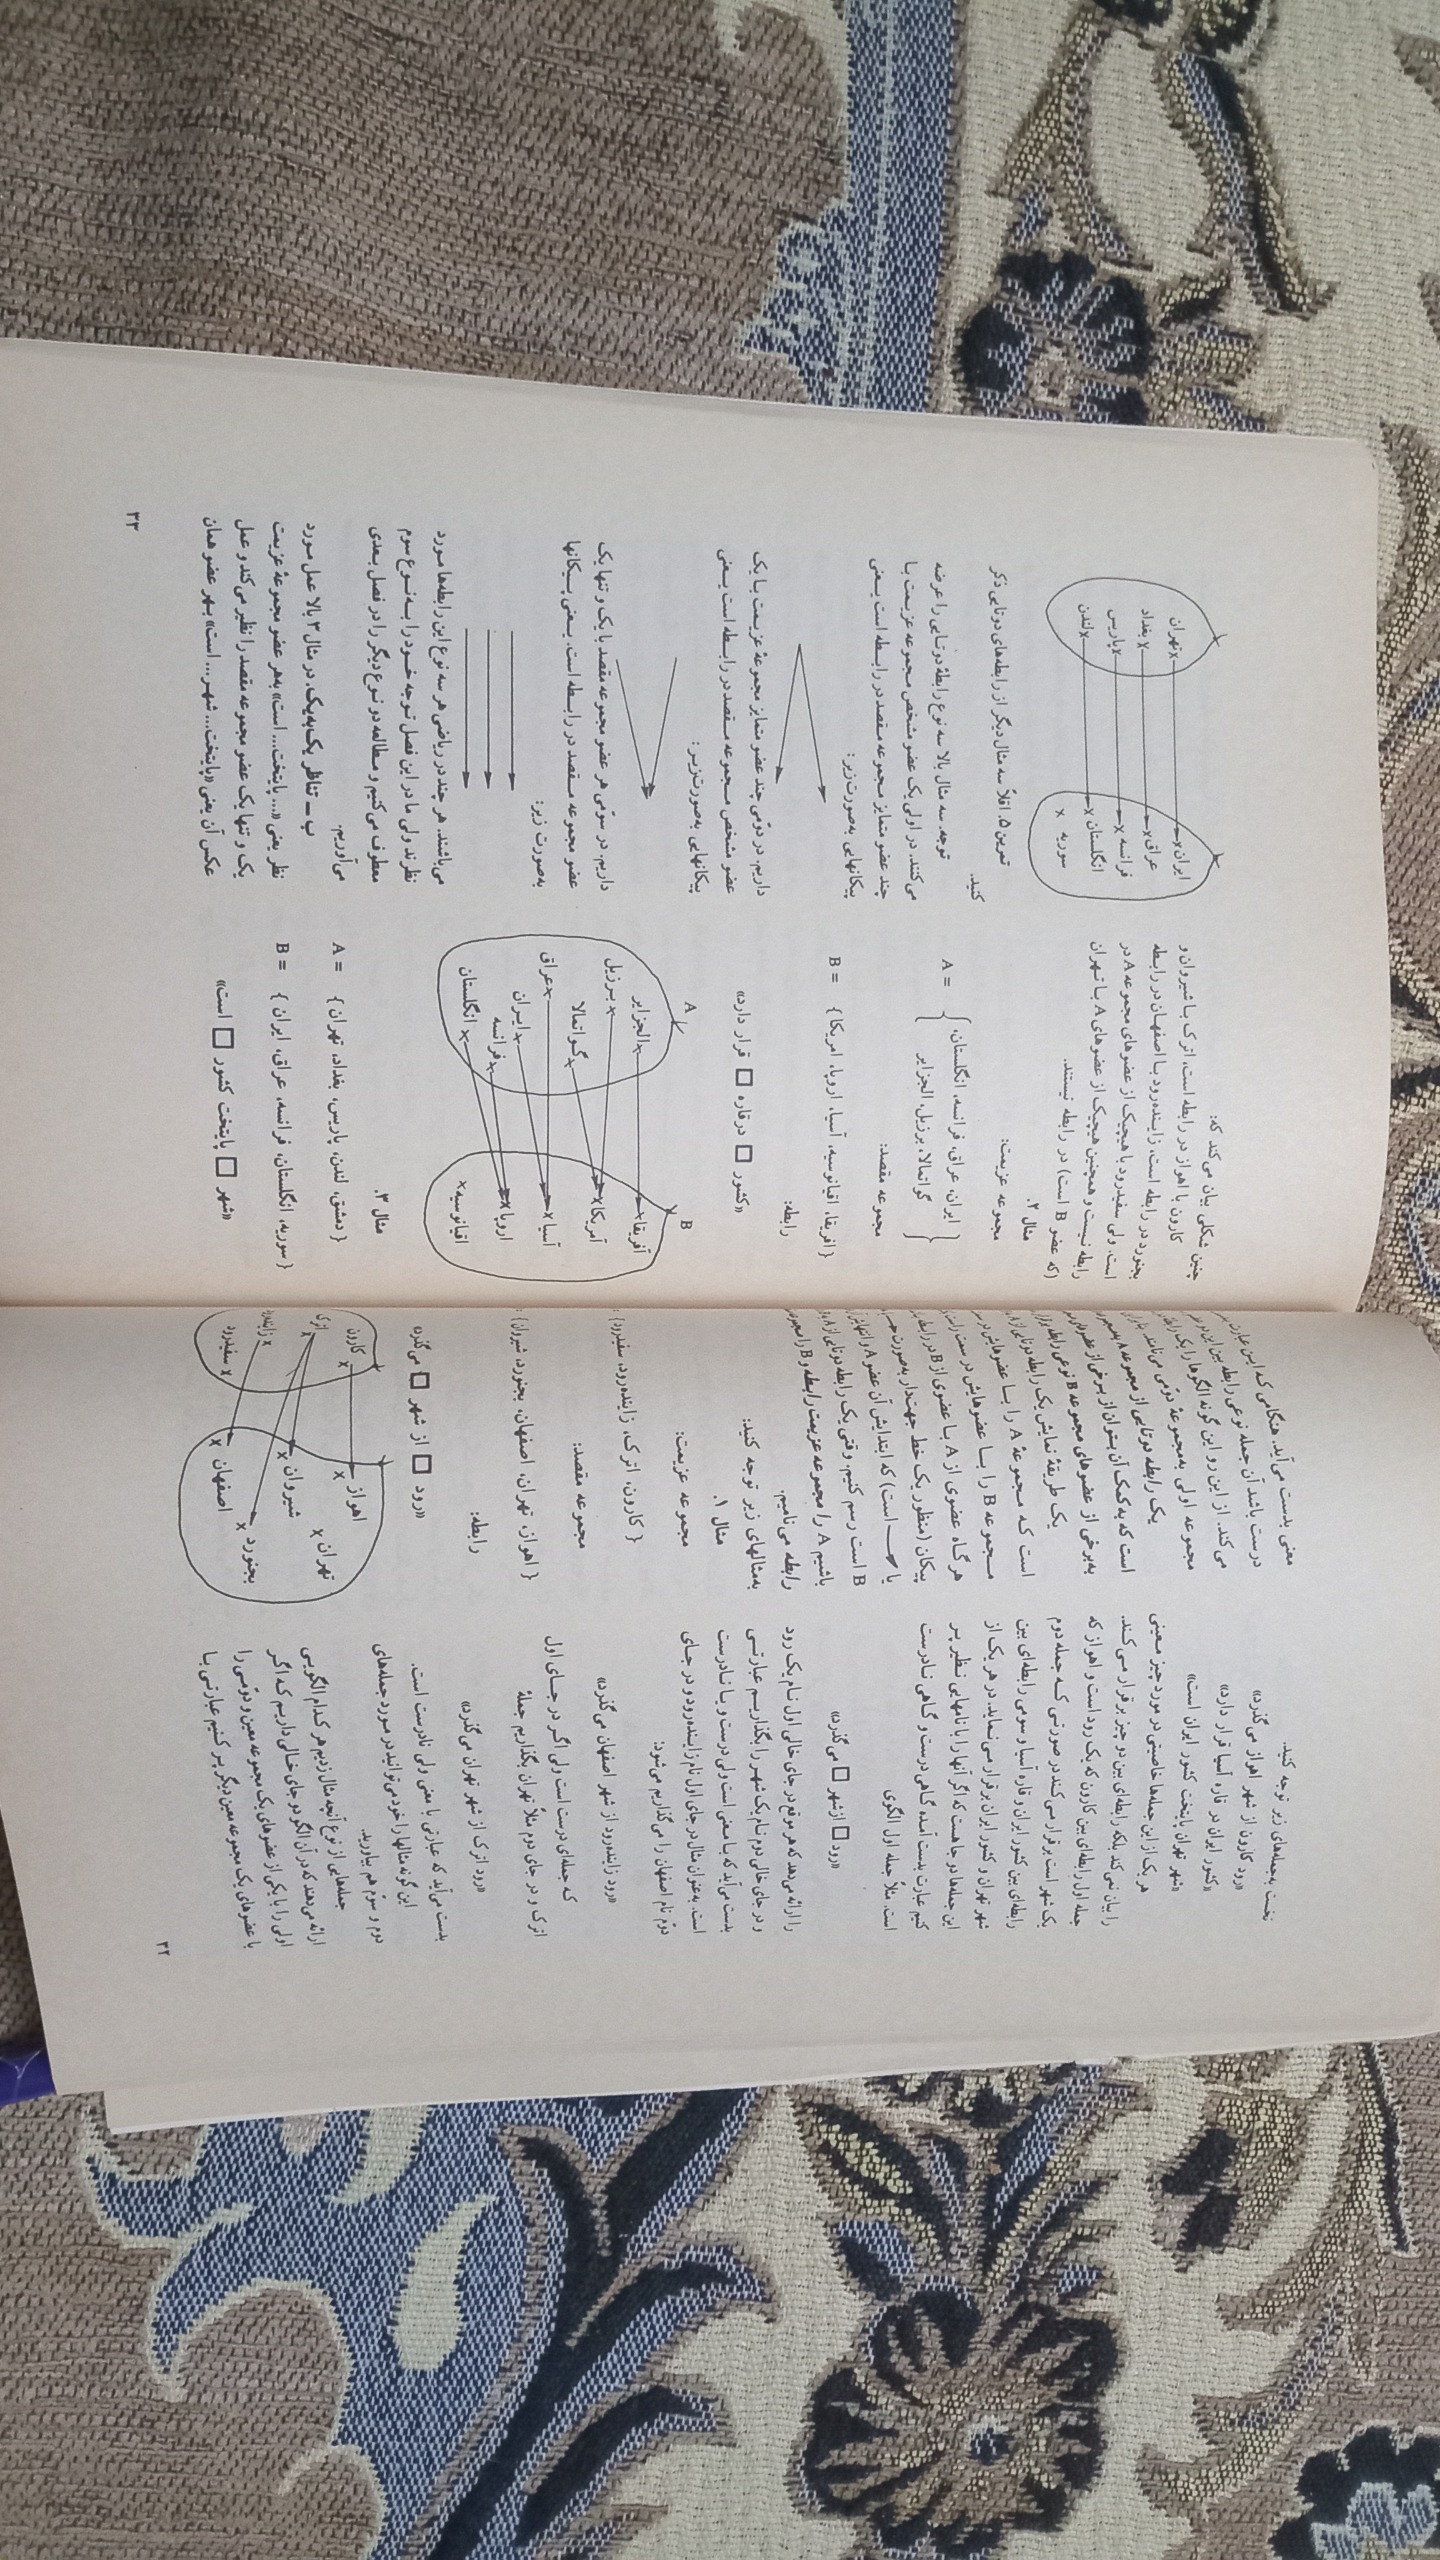 نخست به‌جمله‌های زیر توجه کنید.
«رود کارون از شهر اهواز می‌گذرد»
«کشور ایران در قاره آسیا قرار دارد»
«شهر تهران پایتخت کشور ایران است»
هر یک از این جمله‌ها خاصیتی در مورد چیز معینی
را بیان نمی‌کند بلکه رابطه‌ای بین دو چیز برقرار می‌کند.
جمله اول رابطه‌ای بین کارون که یک رود است و اهواز که
یک شهر است برقرار می‌کند در صورتی که جمله دوم
رابطه‌ای بین کشور ایران و قاره آسیا و سومی رابطه‌ای بین
شهر تهران و کشور ایران برقرار می‌نماید. در هر یک از
این جمله‌ها دو جا هست که اگر آنها را با نامهایی نظیر پر
کنیم عبارت بدست آمده گاهی درست و گاهی نادرست
است. مثلاً جمله اول الگوی
«رود □ ازشهر □ می‌گذرد»
را ارائه می‌دهد که هر موقع در جای خالی اول نام یک رود
و در جای خالی دوم نام یک شهر را بگذاریم عبارتی
بدست می‌آید که با معنی است ولی درست و یا نادرست
است. به‌عنوان مثال در جای اول نام زاینده‌رود و در جای
دوّم نام اصفهان را می‌گذاریم می‌شود:
«رود زاینده‌رود از شهر اصفهان می‌گذرد»
که جمله‌ای درست است ولی اگر در جای اول
اترک و در جای دوم مثلاً تهران بگذاریم جملهٔ
«رود اترک از شهر تهران می‌گذرد»
بدست می‌آید که عبارتی با معنی ولی نادرست است.
این گونه مثالها را خود می‌توانید در مورد جمله‌های
دوم و سوّم هم بیاورید.
جمله‌هایی از نوع آنچه مثال زدیم هر کدام الگویی
ارائه می‌دهند که در آن الگو دو جای خالی داریم که اگر
اولی را با یکی از عضوهای یک مجموعه معین و دوّمی را
با عضوهای یک مجموعه معین دیگر پر کنیم عبارتی با
۳۲
معنی بدست می‌آید. هنگامی که این عبارت
درست باشد آن جمله نوعی رابطه بین این دو
می‌کند. از این رو این گونه الگوها را یک رابطه
مجموعه اولی به‌مجموعهٔ دوّمی می‌نامند.
یک رابطه دوتایی از مجموعه A به
است که به‌کمک آن بتوان از برخی از عضوهای
به‌برخی از عضوهای مجموعه B نوعی رابطه
یک طریقهٔ نمایش یک رابطه دوتایی از
است که مجموعهٔ A را با عضوهایش در
مجموعه B را با عضوهایش در سمت راست
هرگاه عضوی از A با عضوی از B در رابطه
پیکان (منظور یک خط جهت‌دار به‌صورت
یا است) که ابتدایش آن عضو A و انتهایش
B است رسم کنیم. وقتی یک رابطه دوتایی از A
باشیم A را مجموعه عزیمت رابطه و B را مجموعه
رابطه می‌نامیم.
به‌مثالهای زیر توجه کنید:
مثال ۱.
مجموعه عزیمت:
{ کارون، اترک، زاینده‌رود، سفیدرود }
مجموعه مقصد:
{ اهواز، تهران، اصفهان، بجنورد، شیروان }
رابطه:
«رود □ از شهر □ می‌گذرد»
کارون
اترک
سفیدرود
اهواز
تهران
شیروان
بجنورد
اصفهان
چنین شکلی بیان می‌کند که:
کارون با اهواز در رابطه است، اترک با شیروان و
بجنورد در رابطه است، زاینده‌رود با اصفهان در رابطه
است. ولی سفیدرود با هیچیک از عضوهای مجموعه A در
رابطه نیست و همچنین هیچیک از عضوهای A با تهران
(که عضو B است) در رابطه نیستند.
مثال ۲.
مجموعه عزیمت:
A = { ایران، عراق، فرانسه، انگلستان،
گواتمالا، برزیل، الجزایر }
مجموعه مقصد:
B = { افریقا، اقیانوسیه، آسیا، اروپا، امریکا }
رابطه:
«کشور □ درقاره □ قرار دارد»
A
B
الجزایر
برزیل
گواتمالا
عراق
ایران
فرانسه
انگلستان
آفریقا
آمریکا
آسیا
اروپا
اقیانوسیه
مثال ۳.
A = { دمشق، لندن، پاریس، بغداد، تهران }
B = { سوریه، انگلستان، فرانسه، عراق، ایران }
«شهر □ پایتخت کشور □ است»
تهران
بغداد
پاریس
لندن
ایران
عراق
فرانسه
انگلستان
سوریه
تمرین ۵. اقلاً سه مثال دیگر از رابطه‌های دوتایی ذکر
کنید.
توجه. سه مثال بالا سه نوع رابطهٔ دوتایی را عرضه
می‌کنند. در اولی یک عضو مشخص مجموعه عزیمت با
چند عضو متمایز مجموعه مقصد در رابطه است یعنی
پیکانهایی به‌صورت‌زیر:
داریم. در دوّمی چند عضو متمایز مجموعهٔ عزیمت با یک
عضو مشخص مجموعه مقصد در رابطه است یعنی
پیکانهایی به‌صورت‌زیر:
داریم. در سوّمی هر عضو مجموعه مقصد با یک و تنها یک
عضو مجموعه مقصد در رابطه است. یعنی پیکانها
به‌صورت زیر:
می‌باشند. هر چند در ریاضی هر سه نوع این رابطه‌ها مورد
نظرند ولی ما در این فصل توجه خود را به نوع سوم
معطوف می‌کنیم و مطالعه دو نوع دیگر را در فصل بعدی
می‌آوریم.
ب ــ تناظر یک‌به‌یک. در مثال ۳ بالا عمل مورد
نظر یعنی «... پایتخت... است» به‌هر عضو مجموعهٔ عزیمت
یک و تنها یک عضو مجموعه مقصد را نظیر می‌کند و عمل
عکس آن یعنی «پایتخت... شهر... است» بهر عضو همان
۳۳